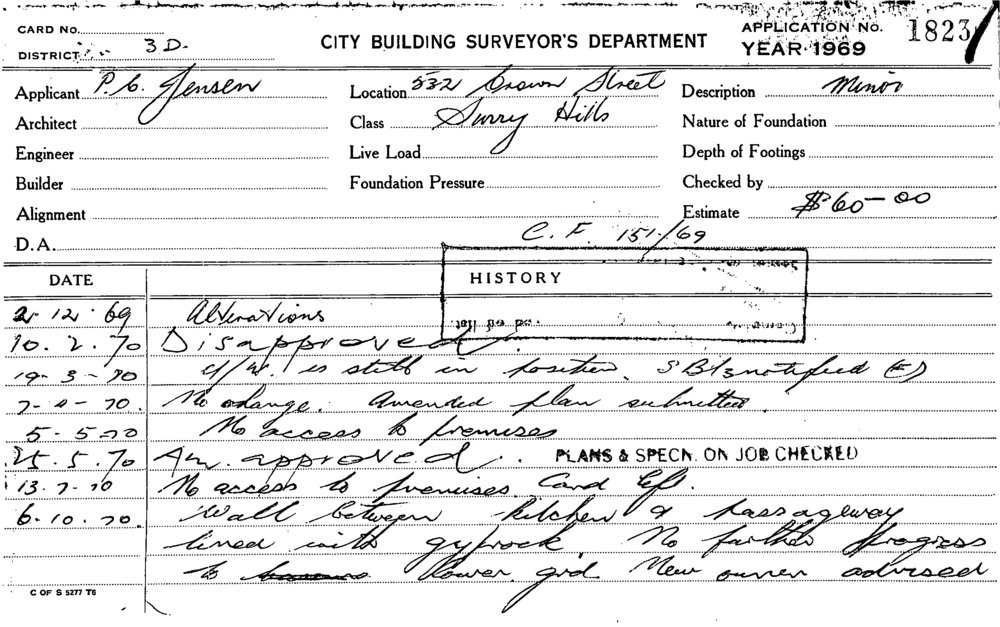 CARD No.
DISTRICT 3 D.
CITY BUILDING SURVEYOR'S DEPARTMENT
APPLICATION No. 1823
YEAR 1969
Applicant P. C. Jensen
Location 532 Crown Street
Description Minor
Architect
Class Surry Hills
Nature of Foundation
Engineer
Live Load
Depth of Footings
Builder
Foundation Pressure
Checked by
Alignment
Estimate $60-00
D.A.
C. F. 151/69
DATE
HISTORY
2.12.69 Alterations
10.2.70 Disapproved.
19-3-70 is still in position. notified (E)
7-4-70. No change. Amended plan submitted.
5-5-70 No access to premises
25.5.70 Am. approved. PLANS & SPECN. ON JOB CHECKED
13-7-70 No access to premises. Card left.
6.10.70. Wall between kitchen & passageway
lined with gyprock. No further progress
to lower grd. New owner advised
C OF S 5277 T6